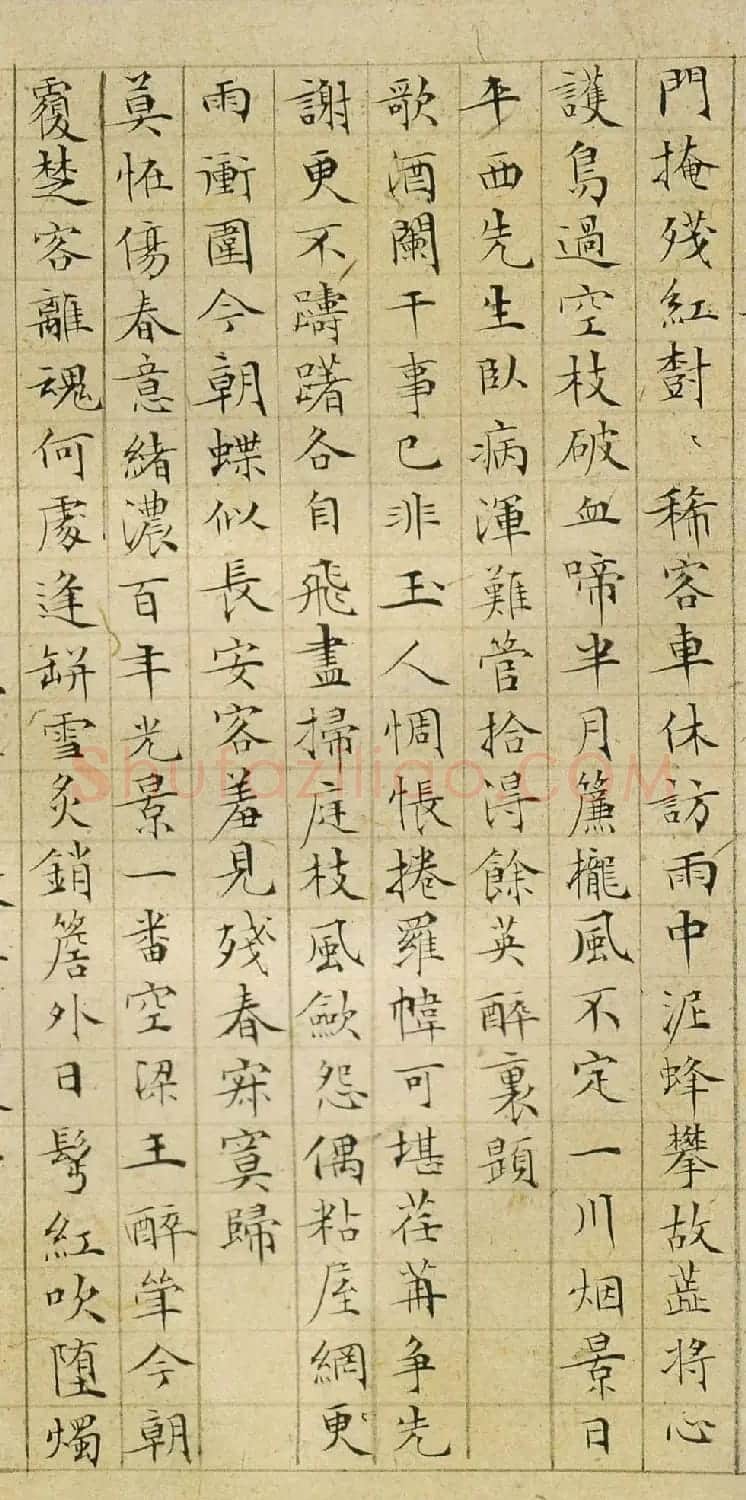 門掩殘紅樹〻稀客車休訪雨中泥蜂攀故蕋將心
護鳥過空枝破血啼半月簾櫳風不定一川烟景日
平西先生臥病渾難管拾得餘英醉裏題
歌酒闌干事已非玉人惆悵捲羅幃可堪荏苒爭先
謝更不躊躇各自飛盡掃庭枝風歛怨偶粘屋網更
雨衝圍今朝蝶似長安客羞見殘春寂寞歸
莫恠傷春意緒濃百年光景一番空梁王醉筆今朝
覆楚客離魂何處逢缾雪炙銷簷外日髩紅吹墮燭
Shufaziliao.COM